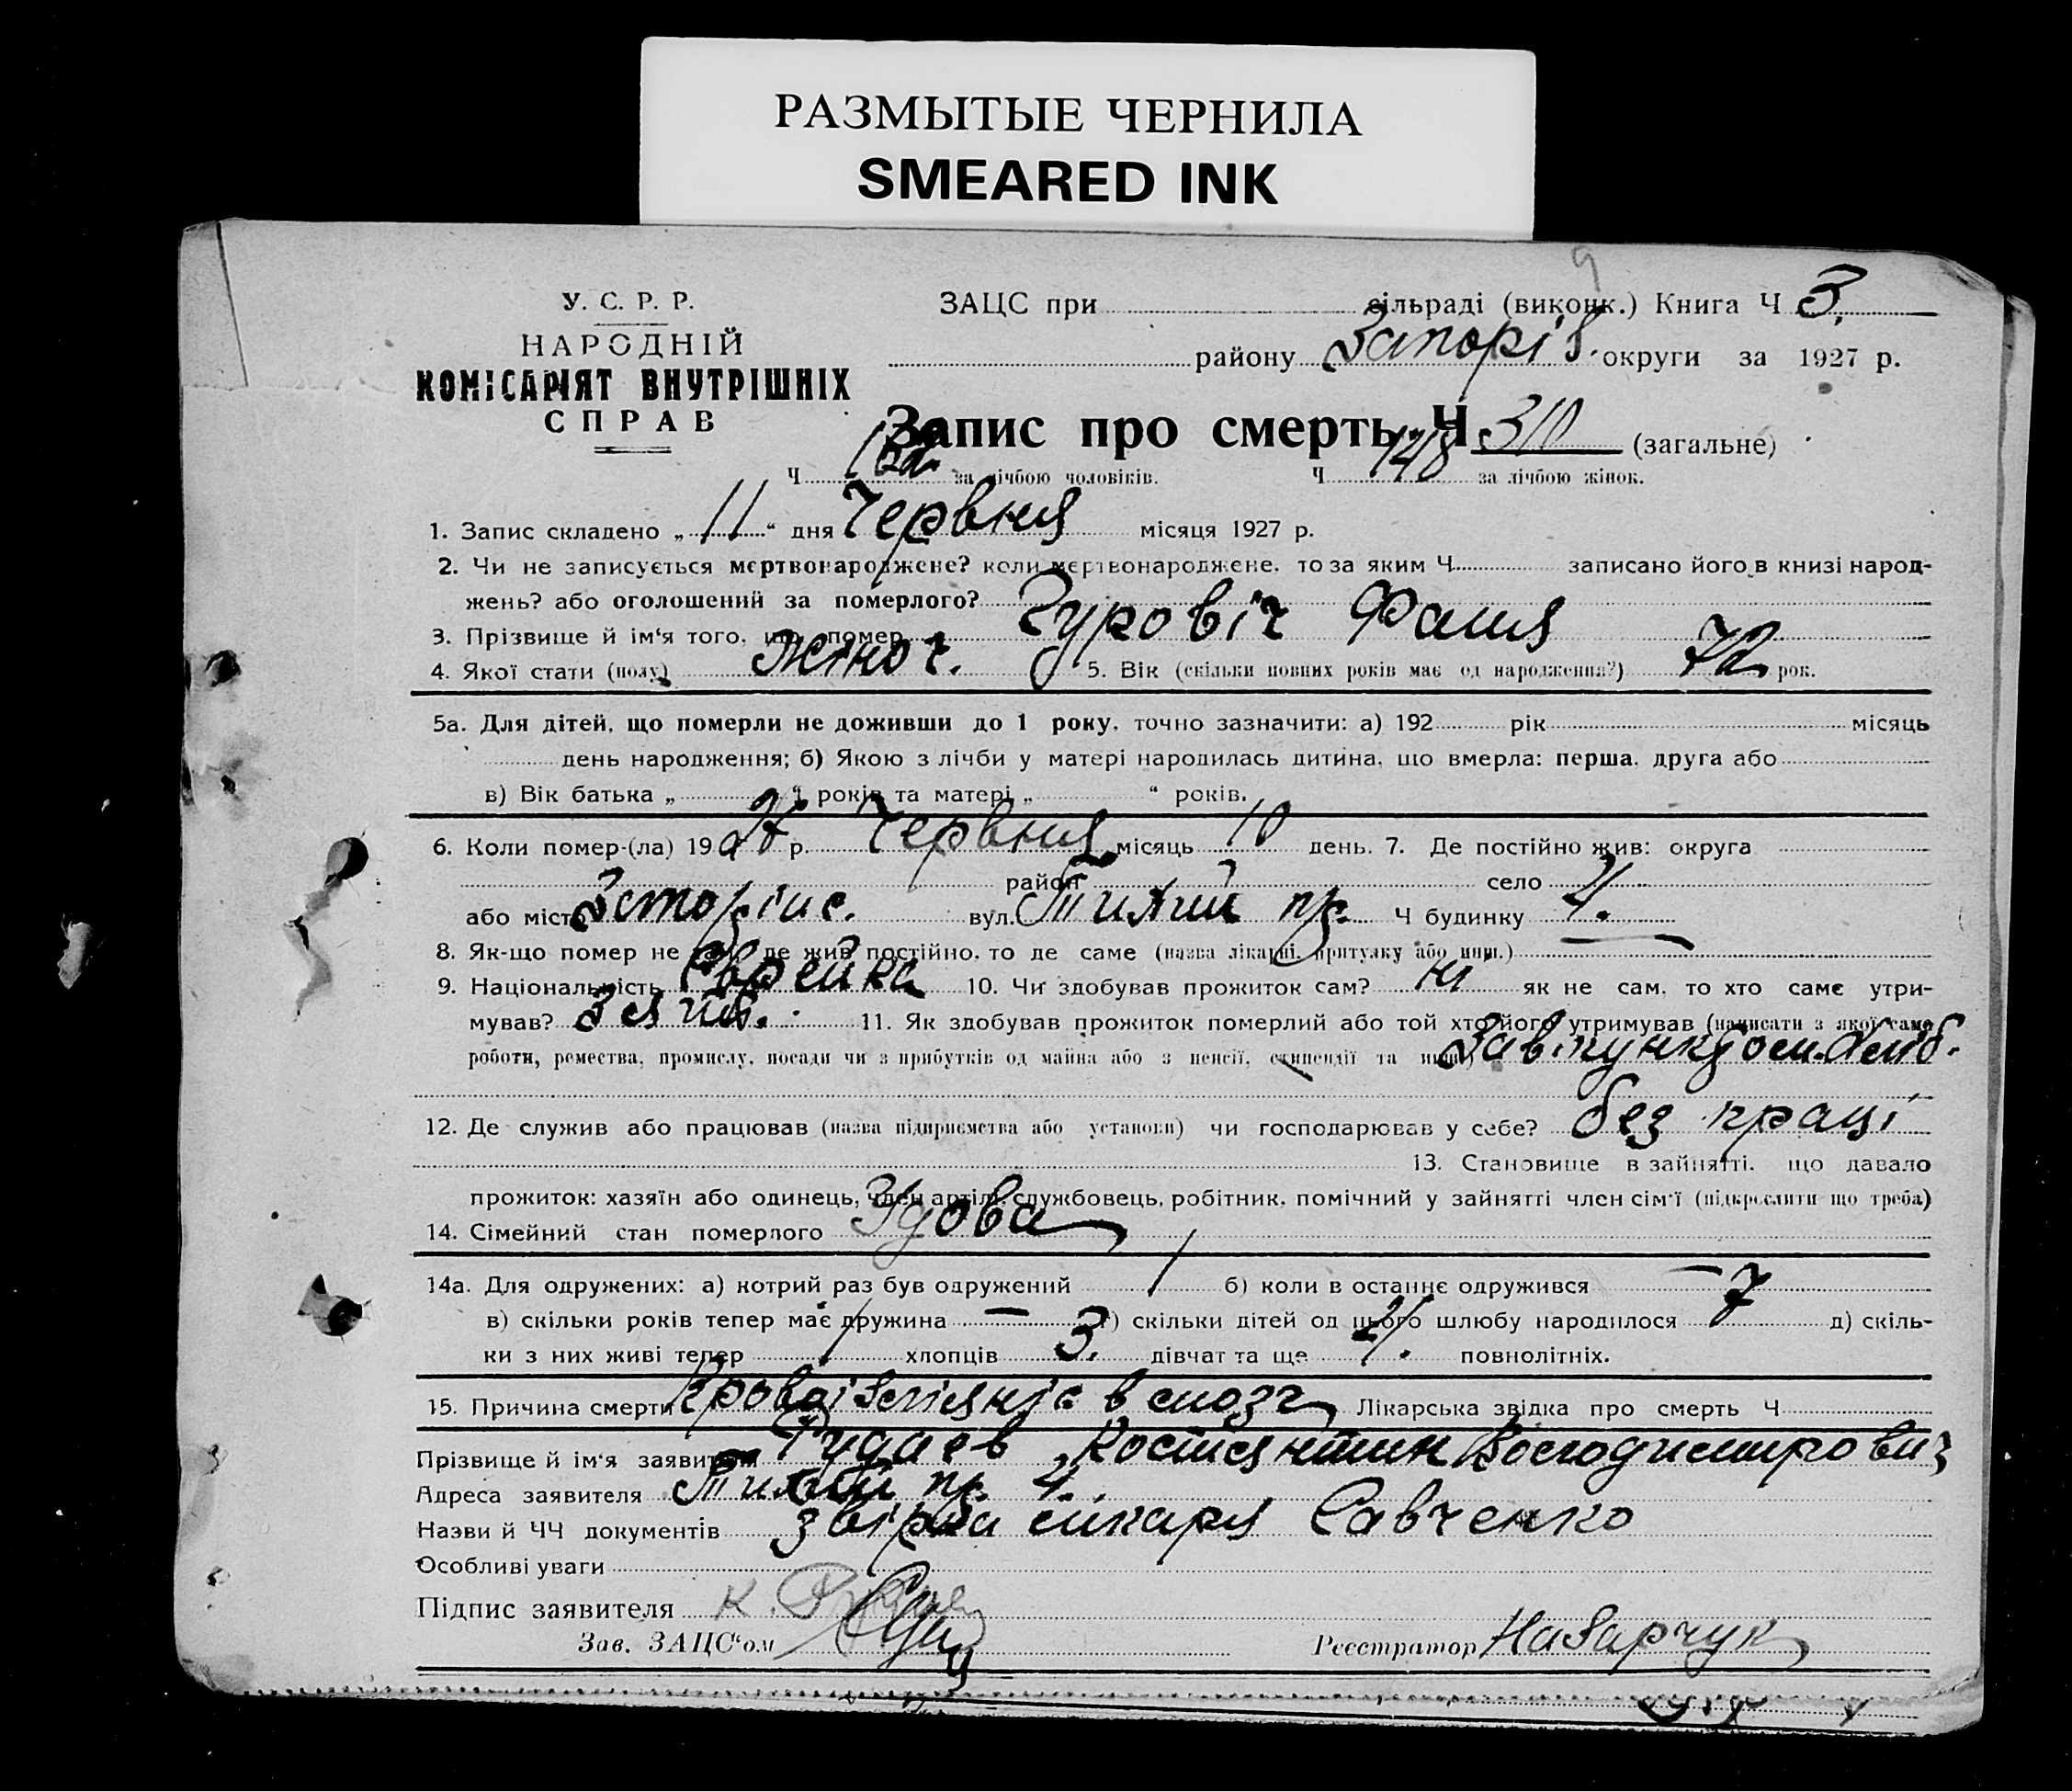 РАЗМЫТЫЕ ЧЕРНИЛА
SMEARED INK
У. С. Р. Р.
НАРОДНІЙ
КОМІСАРІЯТ ВНУТРІШНІХ
СПРАВ
9
ЗАЦС при сільраді (виконк.) Книга Ч 3.
району Запоріз. округи за 1927 р.
Запис про смерть Ч 310 (загальне)
Ч 162 за лічбою чоловіків. Ч 148 за лічбою жінок.
1. Запис складено „ 11 “ дня Червня місяця 1927 р.
2. Чи не записується мертвонароджене? коли мертвонароджене, то за яким Ч записано його в книзі народ-
жень? або оголошений за померлого?
3. Прізвище й ім‘я того, що помер Гуровіч Фаня
4. Якої стати (полу) жіноч. 5. Вік (скільки повних років має од народження?) 72 рок.
5а. Для дітей, що померли не доживши до 1 року, точно зазначити: а) 192 рік місяць
день народження; б) Якою з лічби у матері народилась дитина, що вмерла: перша, друга або
в) Вік батька „ “ років та матері „ “ років.
6. Коли помер-(ла) 1927 р. Червня місяць 10 день. 7. Де постійно жив: округа
район село
або місто вул. Тихий пр. Ч будинку 4.
8. Як-що помер не там, де жив постійно, то де саме (назва лікарні, притулку або инш.) —
9. Національність Єврейка 10. Чи здобував прожиток сам? ні як не сам, то хто саме утри-
мував? Зять. 11. Як здобував прожиток померлий або той хто його утримував (написати з якої саме
роботи, ремества, промислу, посади чи з прибутків од майна або з пенсії, стипендії та инш.)
12. Де служив або працював (назва підприємства або установи) чи господарював у себе? без праці
13. Становище в зайнятті, що давало
прожиток: хазяїн або одинець, член артілі, службовець, робітник, помічний у зайнятті член сім‘ї (підкреслити що треба)
14. Сімейний стан померлого Удова
14а. Для одружених: а) котрий раз був одружений 1 б) коли в останнє одружився —
в) скільки років тепер має дружина — г) скільки дітей од цього шлюбу народилося 7 д) скіль-
ки з них живі тепер 1 хлопців 3. дівчат та ще 4. повнолітніх.
15. Причина смерти в мозг Лікарська звідка про смерть Ч
Прізвище й ім‘я заявителя Костянтин
Адреса заявителя Тихий пр. 4.
Назви й ЧЧ документів лікаря Савченко
Особливі уваги
Підпис заявителя К.
Зав. ЗАЦС‘ом
Реєстратор Назарчук